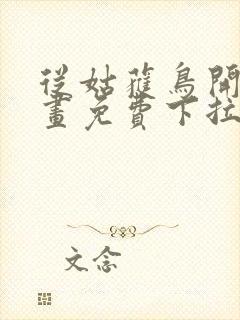 從姑蓷鳥開
畫免費下拉
文念